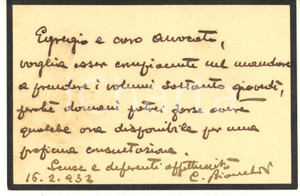 Egregio e caro Avvocato,
voglia esser compiacente nel mandare
a prendere i volumi soltanto giovedì,
perché domani potrei forse avere
qualche ora disponibile per una
proficua consultazione.
Scuse e deferenti
16.2.932 C. Bianchi